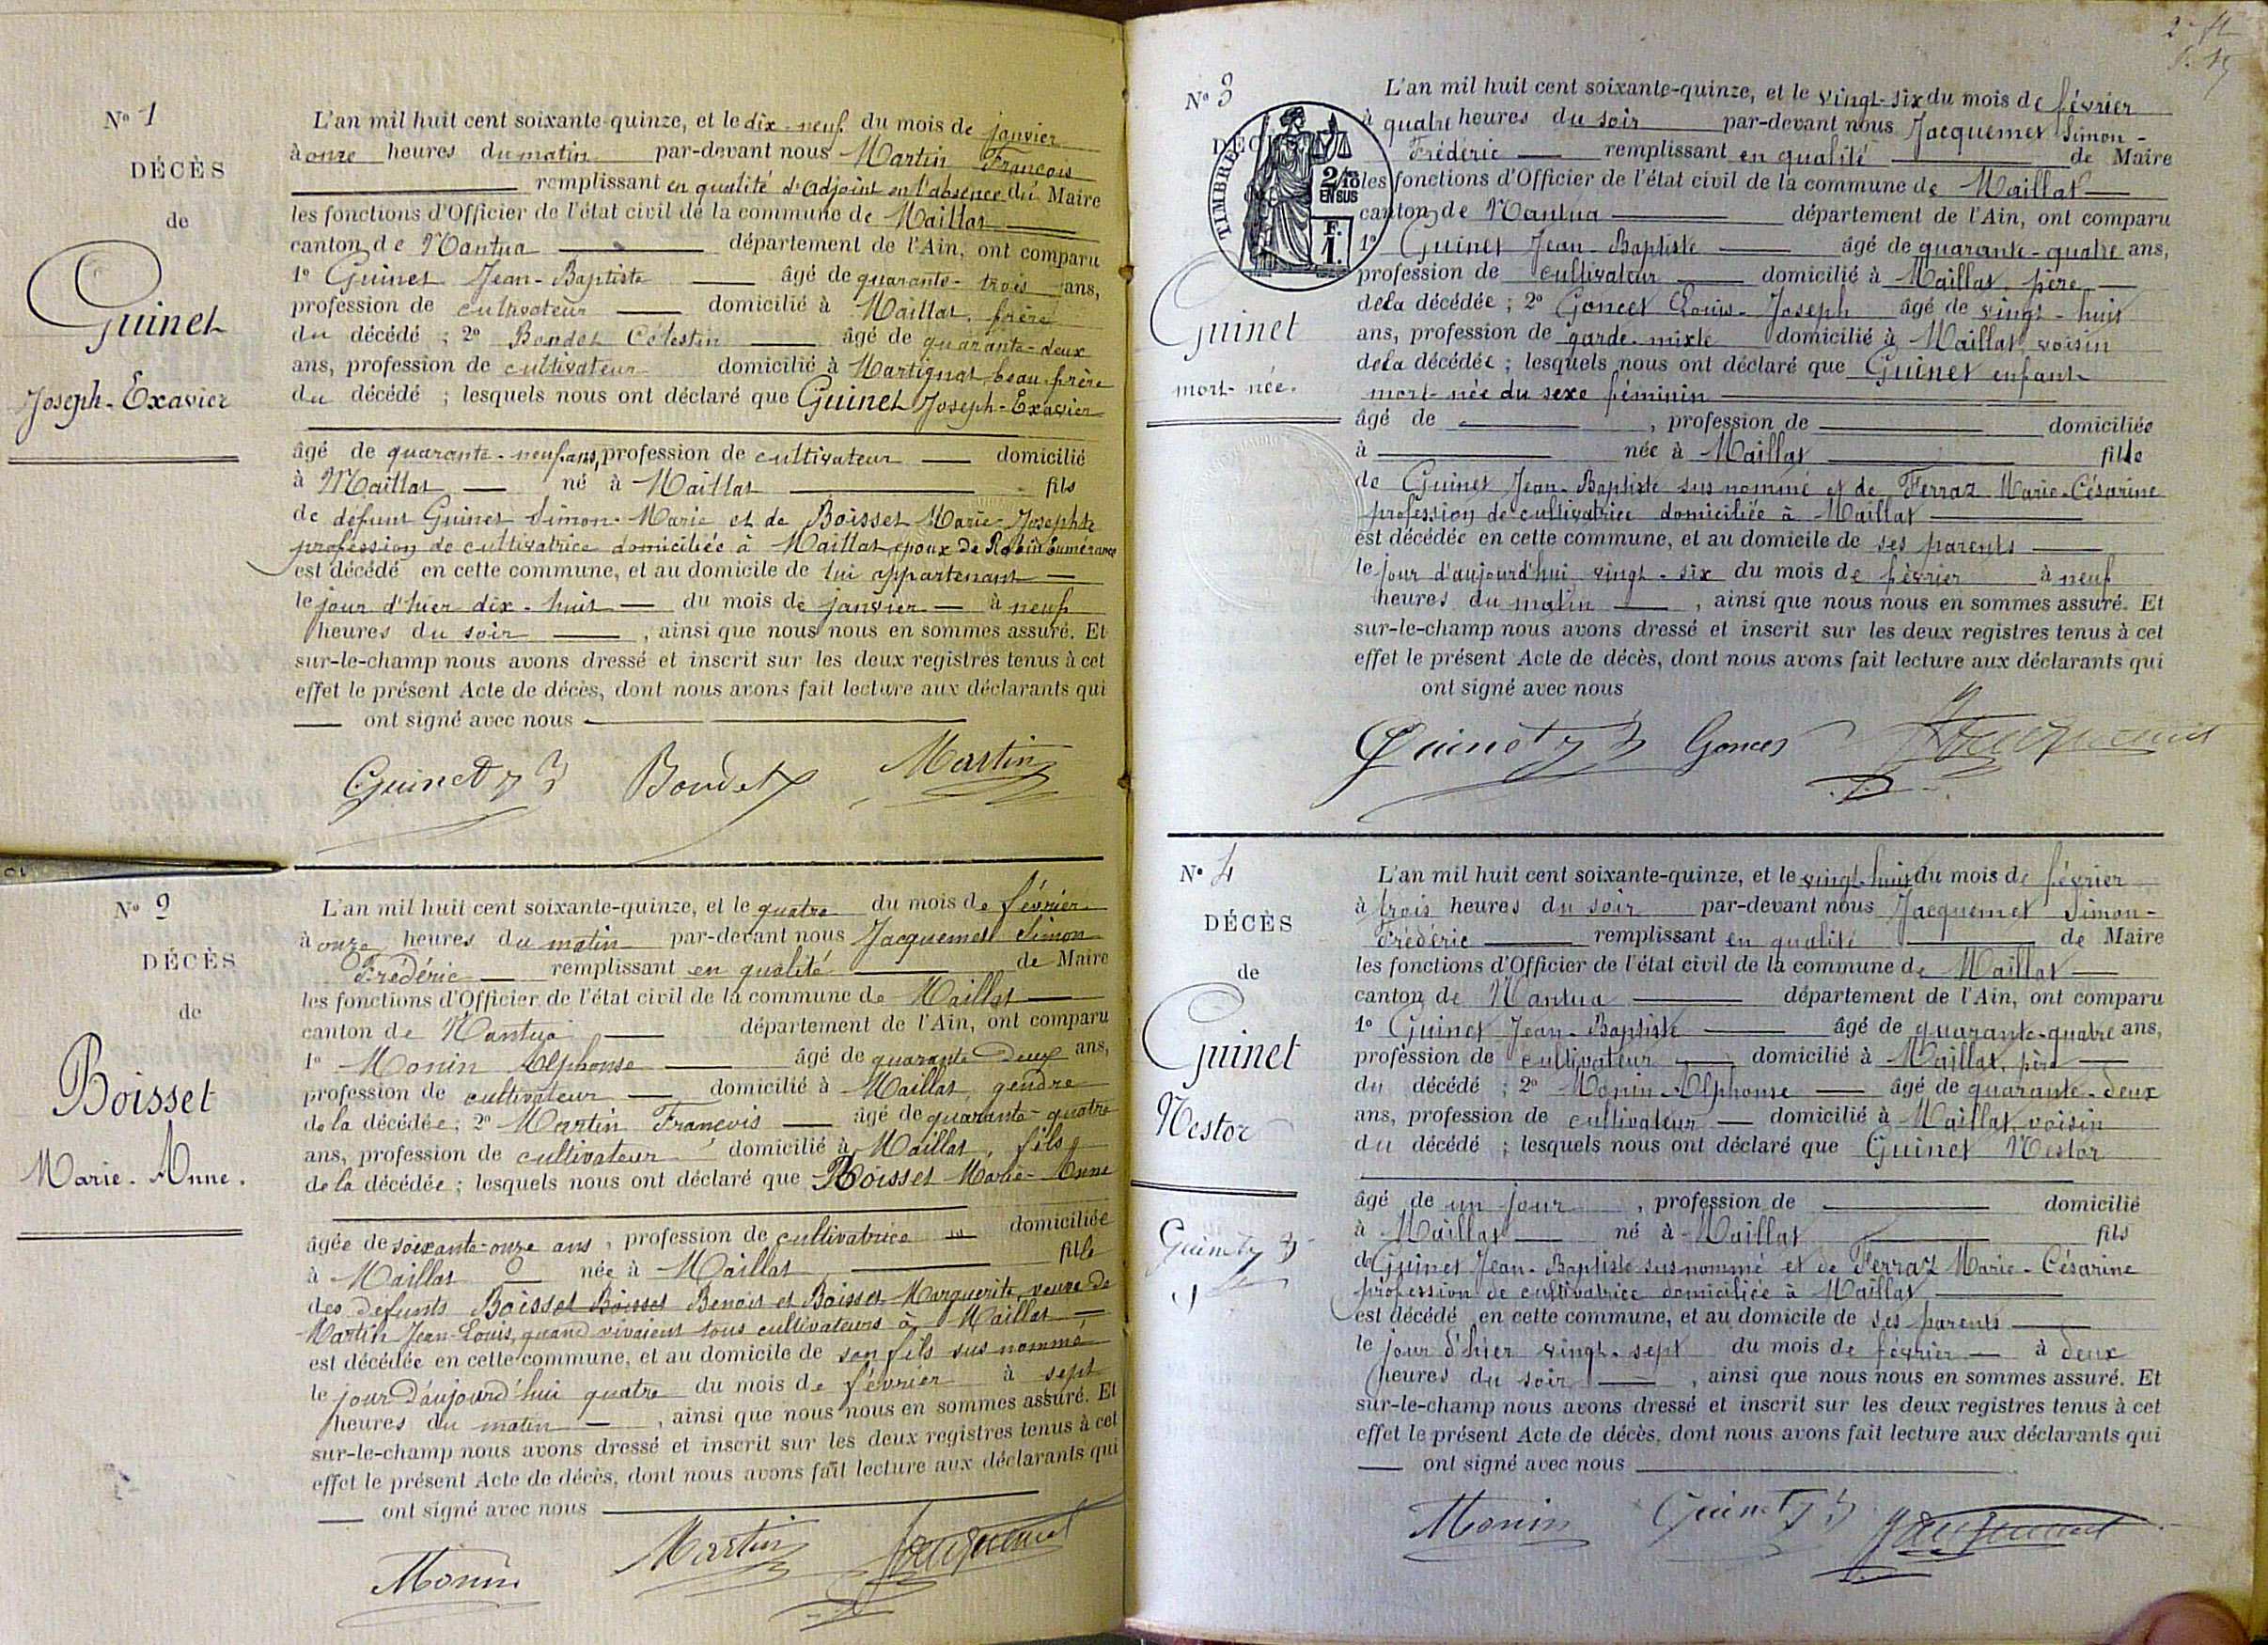 N° 1
DÉCÈS
de
Guinet
Joseph-Exavier
L'an mil huit cent soixante-quinze, et le dix-neuf du mois de janvier
à onze heures du matin par-devant nous Martin François
remplissant en qualité d'adjoint en l'absence du Maire
les fonctions d'Officier de l'état civil de la commune de Maillat
canton de Nantua département de l'Ain, ont comparu
1° Guinet Jean-Baptiste âgé de quarante-trois ans,
profession de cultivateur domicilié à Maillat, frère
du décédé ; 2° Bondet Célestin âgé de quarante-deux
ans, profession de cultivateur domicilié à Martignat, beau-frère
du décédé ; lesquels nous ont déclaré que Guinet Joseph-Exavier
âgé de quarante-neuf ans, profession de cultivateur domicilié
à Maillat né à Maillat fils
de défunt Guinet Simon-Marie et de Boisset Marie-Josephte
profession de cultivatrice domiciliée à Maillat, époux de Robin
est décédé en cette commune, et au domicile de lui appartenant
le jour d'hier dix-huit du mois de janvier à neuf
heures du soir , ainsi que nous nous en sommes assuré. Et
sur-le-champ nous avons dressé et inscrit sur les deux registres tenus à cet
effet le présent Acte de décès, dont nous avons fait lecture aux déclarants qui
ont signé avec nous
Guinet Bondet Martin
N° 2
DÉCÈS
de
Boisset
Marie-Anne.
L'an mil huit cent soixante-quinze, et le quatre du mois de février
à onze heures du matin par-devant nous Jacquemet Simon
Frédéric remplissant en qualité de Maire
les fonctions d'Officier de l'état civil de la commune de Maillat
canton de Nantua département de l'Ain, ont comparu
1° Monin Alphonse âgé de quarante deux ans,
profession de cultivateur domicilié à Maillat, gendre
de la décédée ; 2° Martin François âgé de quarante-quatre
ans, profession de cultivateur domicilié à Maillat, fils
de la décédée ; lesquels nous ont déclaré que Boisset Marie-Anne
âgée de soixante-onze ans , profession de cultivatrice domiciliée
à Maillat née à Maillat fille
des défunts Boisset Boisset Benoit et Boisset Marguerite, veuve de
Martin Jean-Louis, quand vivaient tous cultivateurs à Maillat
est décédée en cette commune, et au domicile de son fils sus nommé
le jour d'aujourd'hui quatre du mois de février à sept
heures du matin , ainsi que nous nous en sommes assuré. Et
sur-le-champ nous avons dressé et inscrit sur les deux registres tenus à cet
effet le présent Acte de décès, dont nous avons fait lecture aux déclarants qui
ont signé avec nous
Monin Martin Jacquemet
N° 3
DÉC
TIMBRE
2/10
EN SUS
F.
1.
Guinet
mort-née.
L'an mil huit cent soixante-quinze, et le vingt-six du mois de février
à quatre heures du soir par-devant nous Jacquemet Simon-
Frédéric remplissant en qualité de Maire
les fonctions d'Officier de l'état civil de la commune de Maillat
canton de Nantua département de l'Ain, ont comparu
1° Guinet Jean-Baptiste âgé de quarante-quatre ans,
profession de cultivateur domicilié à Maillat, père
de la décédée ; 2° Goncet Louis-Joseph âgé de vingt-huit
ans, profession de garde-mixte domicilié à Maillat, voisin
de la décédée ; lesquels nous ont déclaré que Guinet enfant
mort-née du sexe féminin
âgé de , profession de domiciliée
à née à Maillat fille
de Guinet Jean-Baptiste sus nommé et de Ferraz Marie-Césarine
profession de cultivatrice domiciliée à Maillat
est décédée en cette commune, et au domicile de ses parents
le jour d'aujourd'hui vingt-six du mois de février à neuf
heures du matin , ainsi que nous nous en sommes assuré. Et
sur-le-champ nous avons dressé et inscrit sur les deux registres tenus à cet
effet le présent Acte de décès, dont nous avons fait lecture aux déclarants qui
ont signé avec nous
Guinet Goncet Jacquemet
N° 4
DÉCÈS
de
Guinet
Nestor
Guinet
L'an mil huit cent soixante-quinze, et le vingt-huit du mois de février
à trois heures du soir par-devant nous Jacquemet Simon-
Frédéric remplissant en qualité de Maire
les fonctions d'Officier de l'état civil de la commune de Maillat
canton de Nantua département de l'Ain, ont comparu
1° Guinet Jean-Baptiste âgé de quarante-quatre ans,
profession de cultivateur domicilié à Maillat, père
du décédé ; 2° Monin Alphonse âgé de quarante-deux
ans, profession de cultivateur domicilié à Maillat, voisin
du décédé ; lesquels nous ont déclaré que Guinet Nestor
âgé de un jour , profession de domicilié
à Maillat né à Maillat fils
de Guinet Jean-Baptiste sus nommé et de Ferraz Marie-Césarine
profession de cultivatrice domiciliée à Maillat
est décédé en cette commune, et au domicile de ses parents
le jour d'hier vingt-sept du mois de février à deux
heures du soir , ainsi que nous nous en sommes assuré. Et
sur-le-champ nous avons dressé et inscrit sur les deux registres tenus à cet
effet le présent Acte de décès, dont nous avons fait lecture aux déclarants qui
ont signé avec nous
Monin Guinet Jacquemet